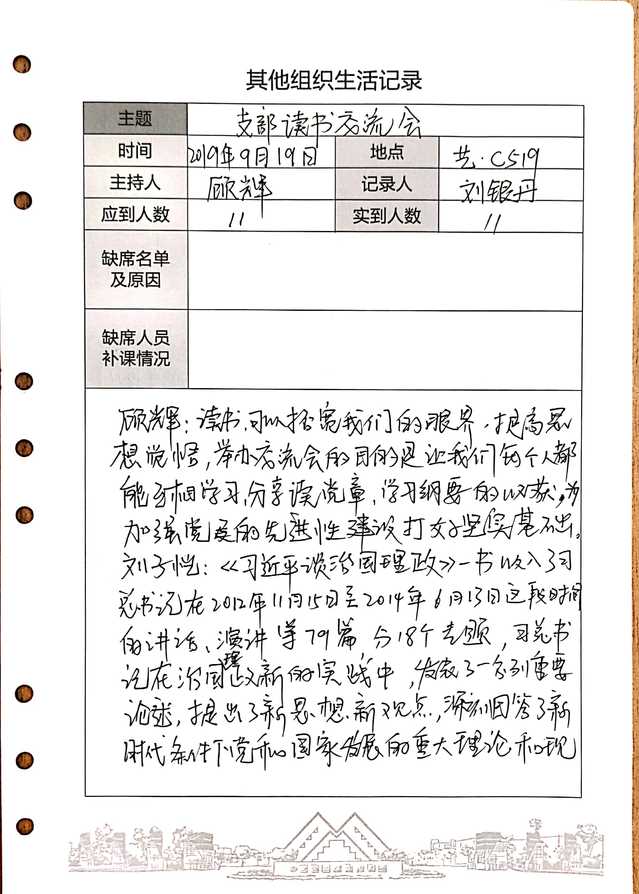 其他组织生活记录
主题 支部读书交流会
时间 2019年9月19日 地点 艺·C519
主持人 顾辉 记录人 刘银丹
应到人数 11 实到人数 11
缺席名单
及原因
缺席人员
补课情况
顾辉：读书,可以拓宽我们的眼界，提高思
想觉悟，举办交流会的目的是让我们每个人都
能互相学习,分享读党章，学习纲要的收获,为
加强党员的先进性建设打好坚实基础。
刘子恺：《习近平谈治国理政》一书收入了习
总书记在2012年11月15日至2014年6月13日这段时间
的讲话、演讲等79篇,分18个专题，习总书
记在治国理政新的实践中，发表了一系列重要
论述，提出了新思想新观点,深刻回答了新
时代条件下党和国家发展的重大理论和现